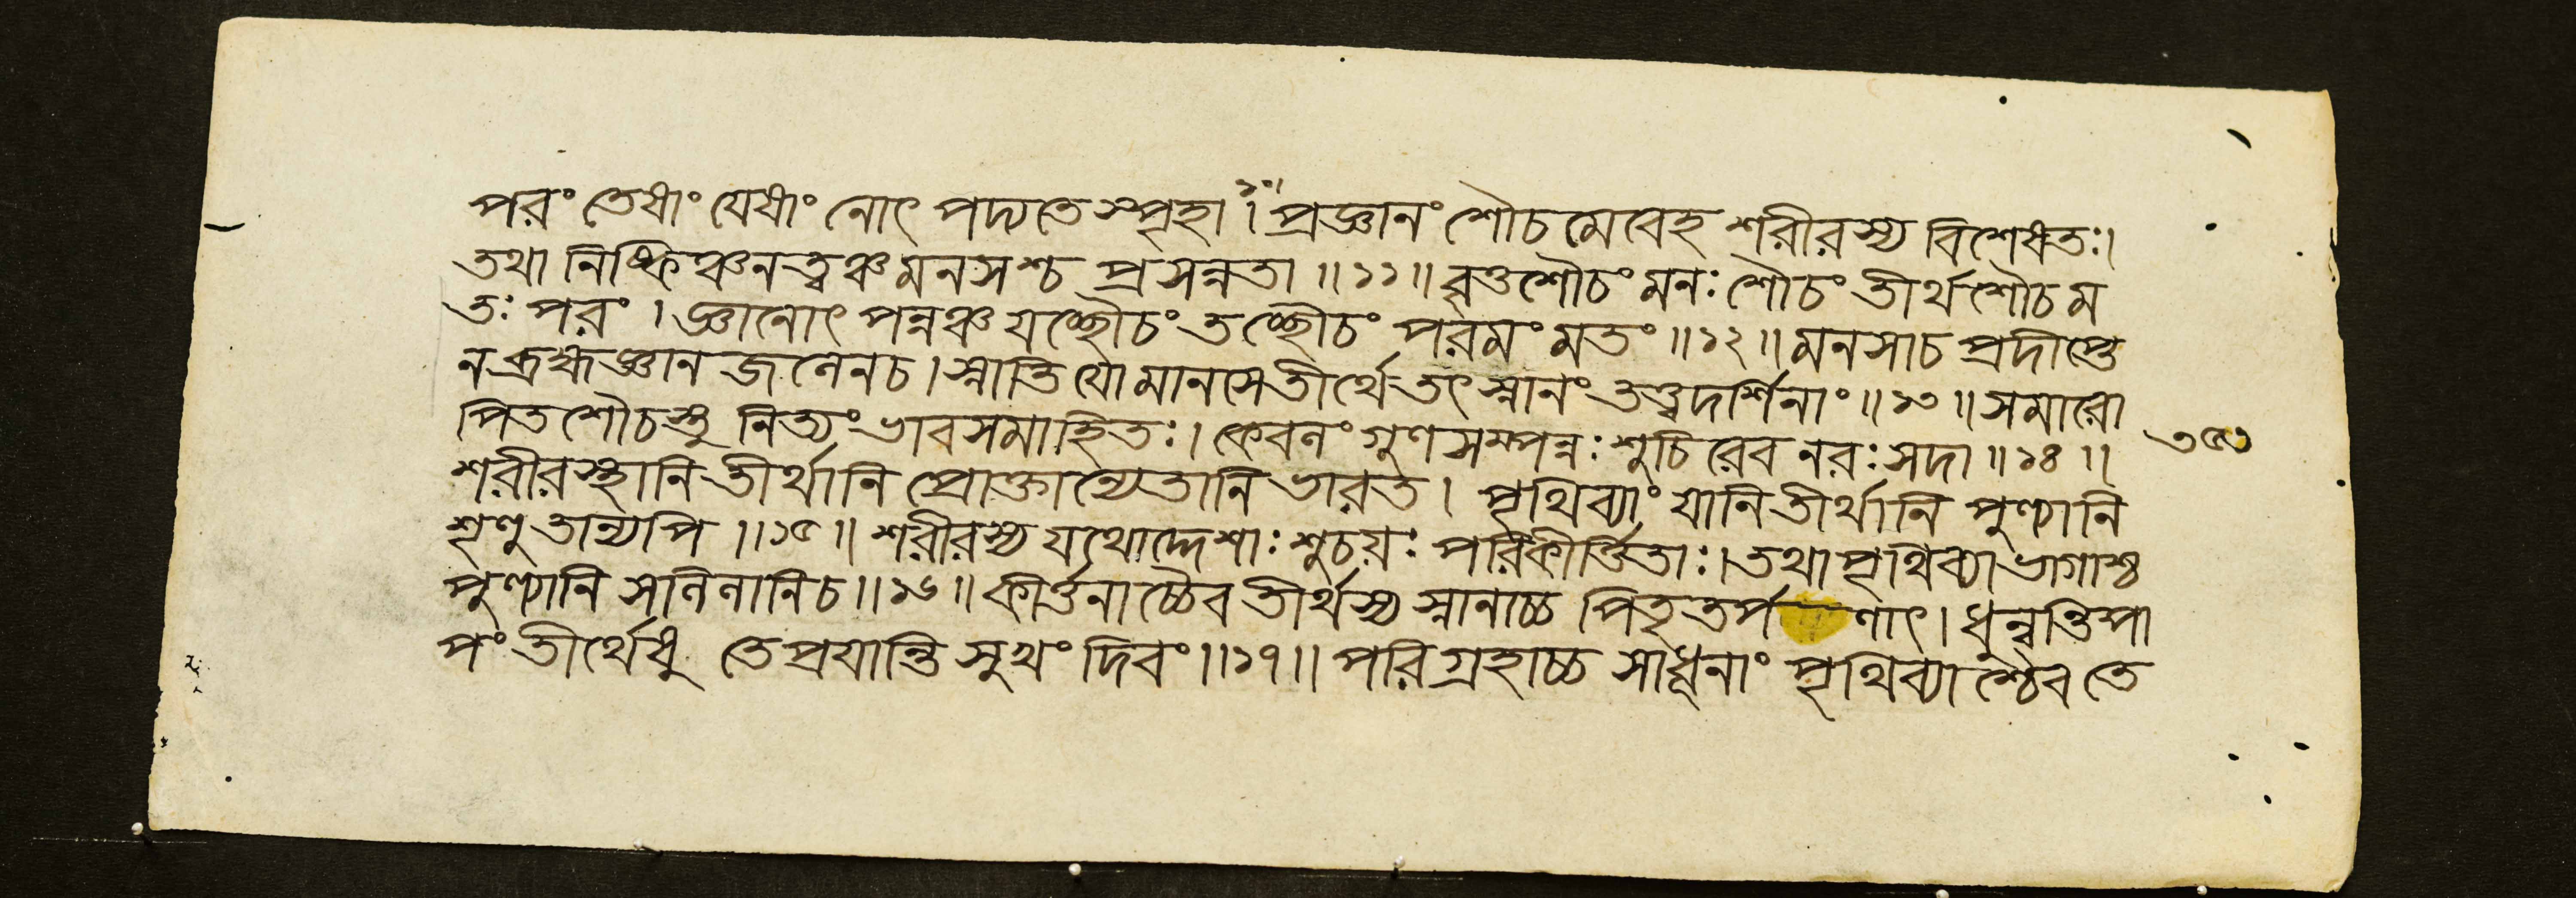 পরং তেষাং যেষাং নোৎপদ্যতে স্পৃহা ॥১০॥ প্রজ্ঞানং শৌচমেবেহ শরীরস্য বিশেষতঃ।
তথা নিষ্কিঞ্চনত্বঞ্চ মনসশ্চ প্রসন্নতা ॥১১॥ বৃত্তশৌচং মনঃশৌচং তীর্থশৌচম
তঃ পরং । জ্ঞানোৎপন্নঞ্চ যচ্ছৌচং তচ্ছৌচং পরমং মতং ॥১২॥ মনসাচ প্রদীপ্তে
ন ব্রহ্মজ্ঞান জলেনচ। স্নাতি যো মানসে তীর্থে তৎ স্নানং তত্ত্বদর্শিনাং ॥১৩॥ সমারো
পিত শৌচস্তু নিত্যং ভাবসমাহিতঃ। কেবলং গুণসম্পন্নঃ শুচিরেব নরঃ সদা ॥১৪॥
শরীরস্থানি তীর্থানি প্রোক্তান্যেতানি ভারত। পৃথিব্যাং যানি তীর্থানি পুণ্যানি
শৃণু তান্যপি ॥১৫॥ শরীরস্য যথোদ্দেশাঃ শুচয়ঃ পরিকীর্ত্তিতাঃ। তথা পৃথিব্যা ভাগাশ্চ
পুণ্যানি সলিলানিচ ॥১৬॥ কীর্ত্তনাচ্চৈব তীর্থস্য স্নানাচ্চ পিতৃতর্প ণাৎ। ধুন্বন্তি পা
পং তীর্থেষু তে প্রযান্তি সুখং দিবং ॥১৭॥ পরিগ্রহাচ্চ সাধূনাং পৃথিব্যাশ্চৈব তে